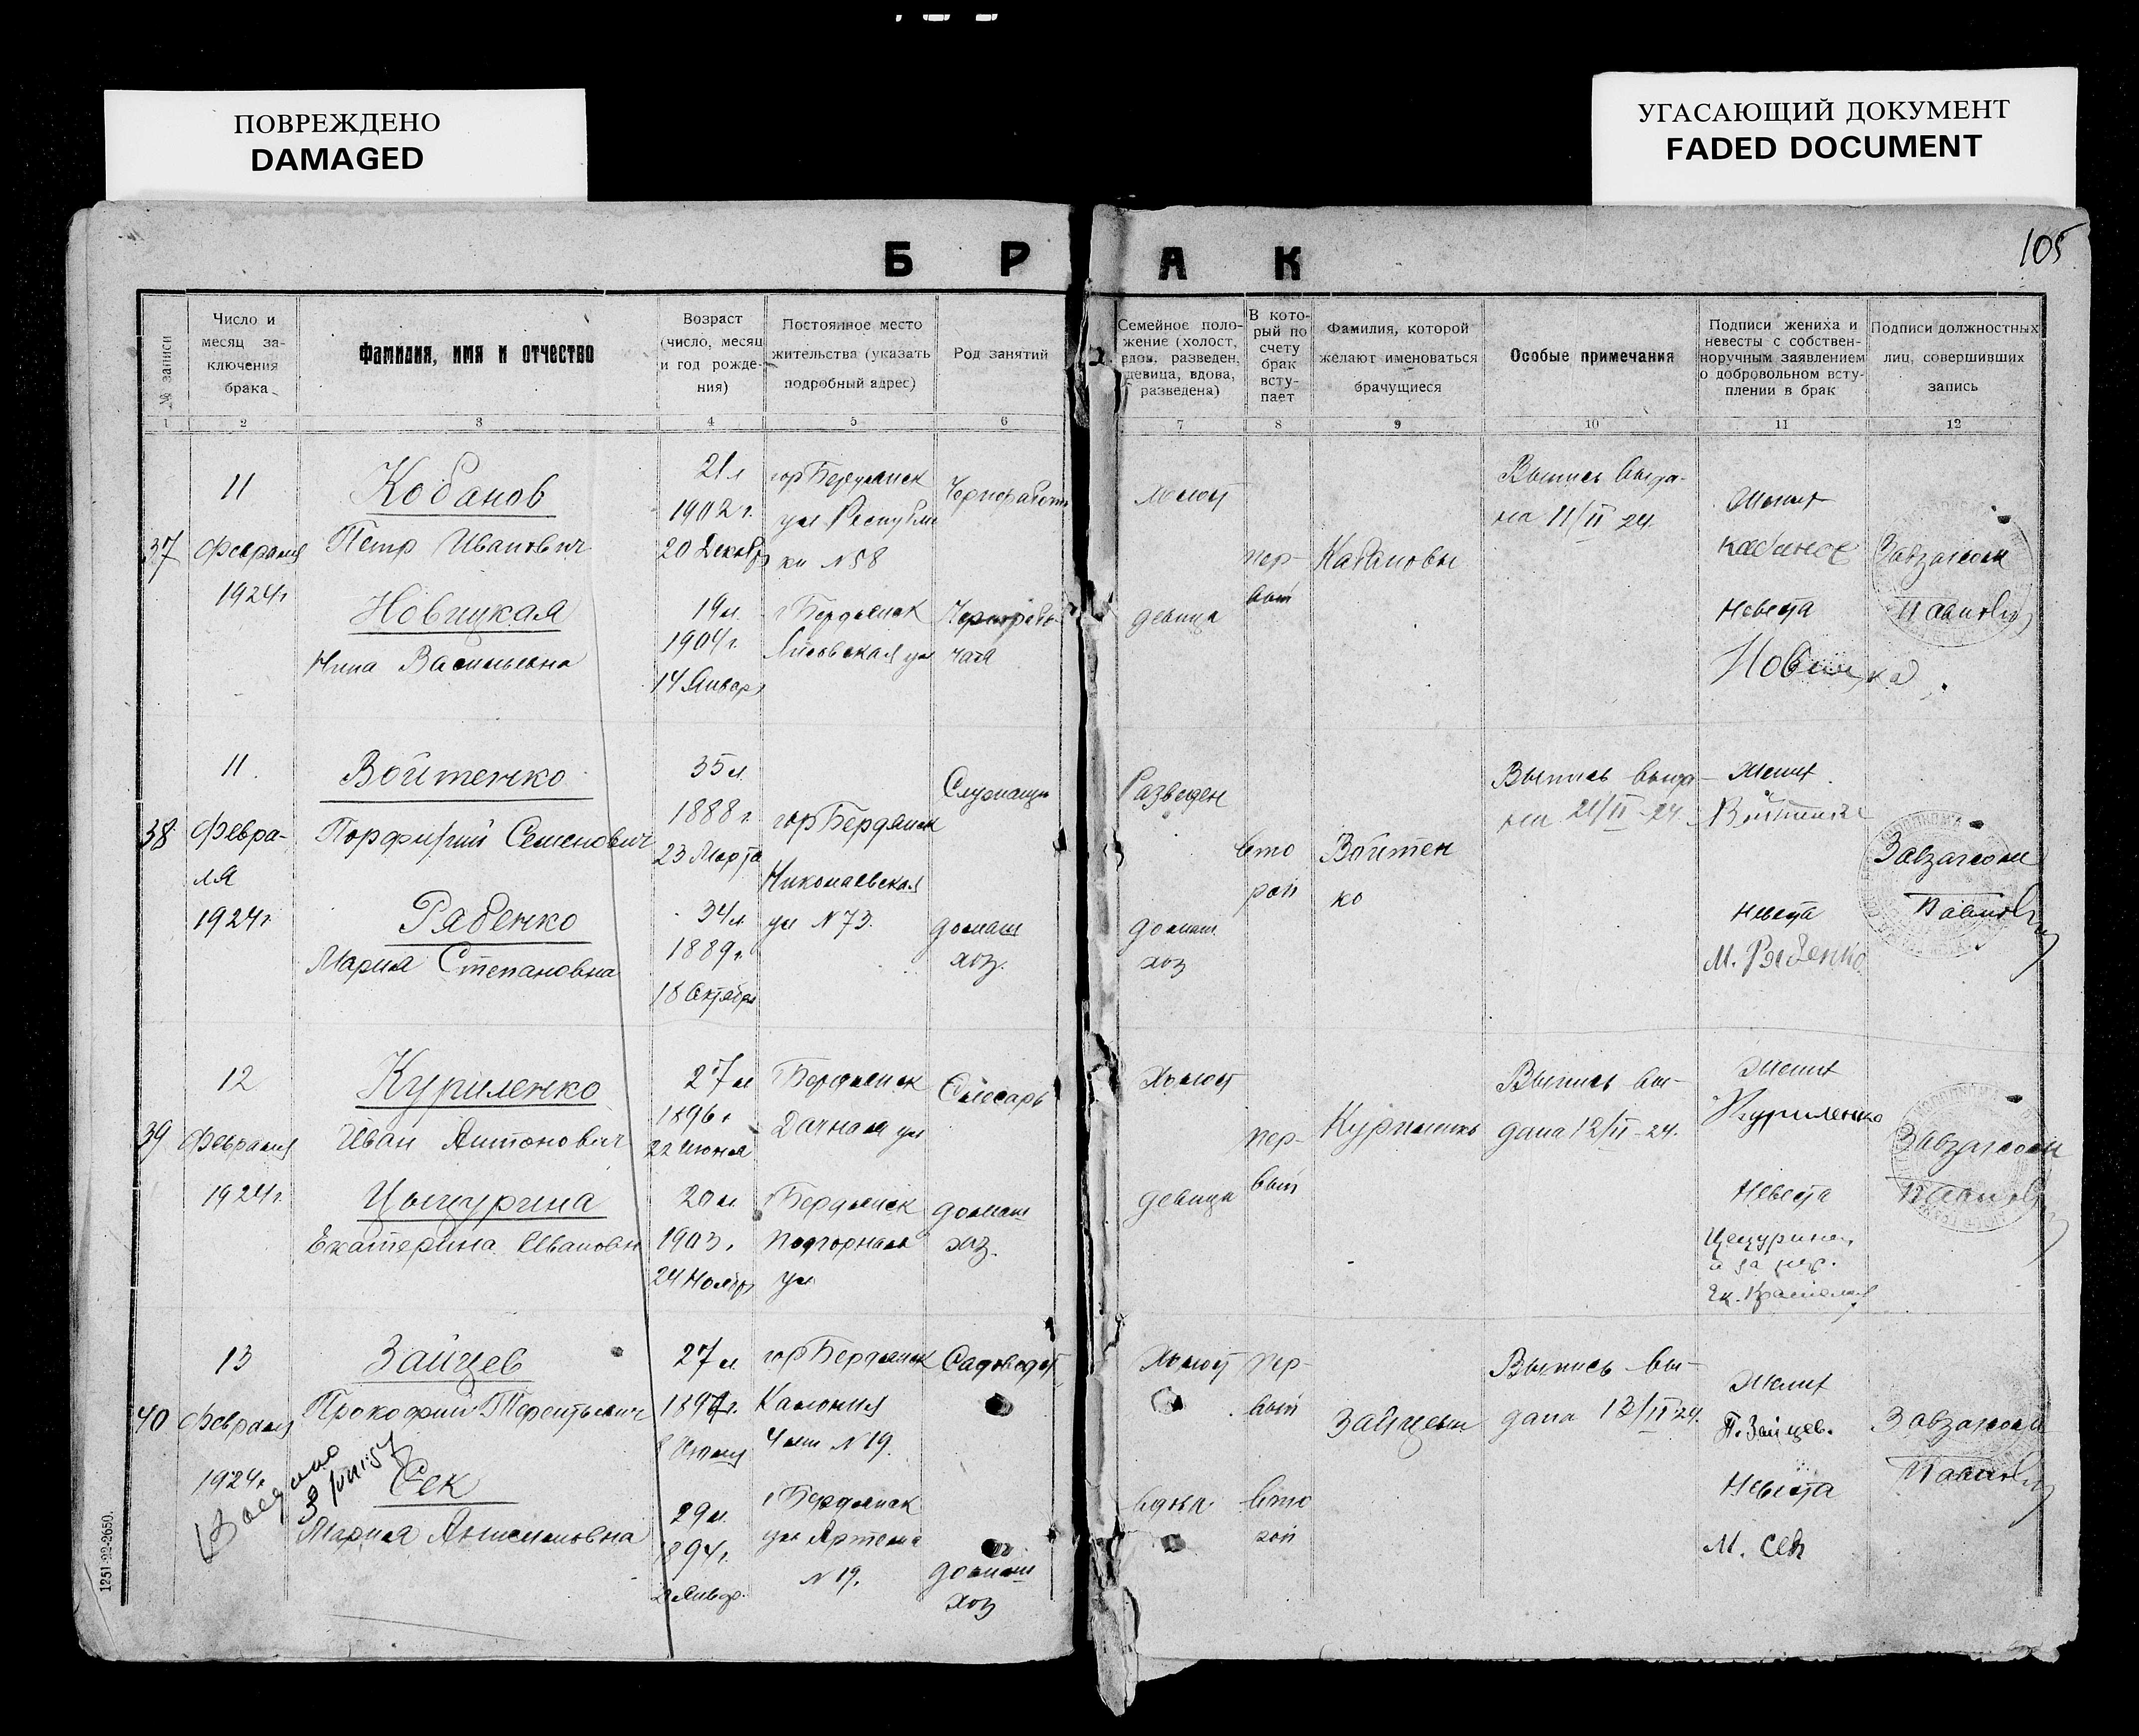 ПОВРЕЖДЕНО
DAMAGED
УГАСАЮЩИЙ ДОКУМЕНТ
FADED DOCUMENT
105
Б Р А К
№ записи
Число и
месяц за-
ключения
брака
Фамилия, имя и отчество
Возраст
(число, месяц
и год рожде-
ния)
Постоянное место
жительства (указать
подробный адрес)
Род занятий
Семейное поло-
жение (холост,
вдов, разведен,
девица, вдова,
разведена)
В кото-
рый по
счету
брак
всту-
пает
Фамилия, которой
желают именоваться
брачущиеся
Особые примечания
Подписи жениха и
невесты с собствен-
норучным заявлением
о добровольном всту-
плении в брак
Подписи должностных
лиц, совершивших
запись
1 2 3 4 5 6 7 8 9 10 11 12
37
11
Февраля
1924г
Кобанов
Петр Иванович
21 л
1902 г.
20 Декабр
гор Бердянск
ул Республи
ки N 58
Чернорабоч
холост
пер-
вый
Кабановы
Выпись выда-
на 11/II 24.
Жених
Кабанов
Завзагсом
Новицкая
Нина Васильевна
19 л.
1904 г.
14 Январ
г Бердянск
ул
Чернрабо-
чая
девица
Невеста
Новицка
38
11
Февра-
ля
1924 г
Войтенко
Порфирий Семенович
35 л
1888 г.
23 Марта
гор Бердянск
Николаевская
ул N 73.
Служащи
Разведен
вто
рой
Войтен
ко
Выпись выда-
на 21/II-24.
Жених
Войтенко
Завзагсом
Рябенко
Мария Степановна
34 л.
1889 г.
18 Октября
домаш
хоз.
домаш
хоз
Невеста
М. Рябенко
39
12
Февраля
1924 г.
Куриленко
Иван Антонович
27 л
1896 г
22 июня
Бердянск
Дачная ул
Слесарь
Холост
пер-
вый
Куриленко
Выпись вы-
дана 12/II-24.
Жених
Куриленко
Завзагсом
Цыцурина
Екатерина Ивановн
20 л.
1903 г.
24 Ноябр
Бердянск
Подгорная
ул
домаш
хоз.
девица
Невеста
40
13
Февраля
1924 г
Зайцев
Прокофий Терентьевич
27 л
1897г.
8 Июля
гор Бердянск
Колония
N 19.
Садовод
Холост
пер-
вый
Зайцевы
Выпись вы-
дана 13/II 24.
Жених
П. Зайцев.
Завзагсом
Сек
Мария Анисимовна
29 л.
1894 г.
2 Январ.
г Бердянск
ул Артема
N 19.
домаш
хоз
вдова
вто
рой
Невеста
М. Сек
1251-22-2650.